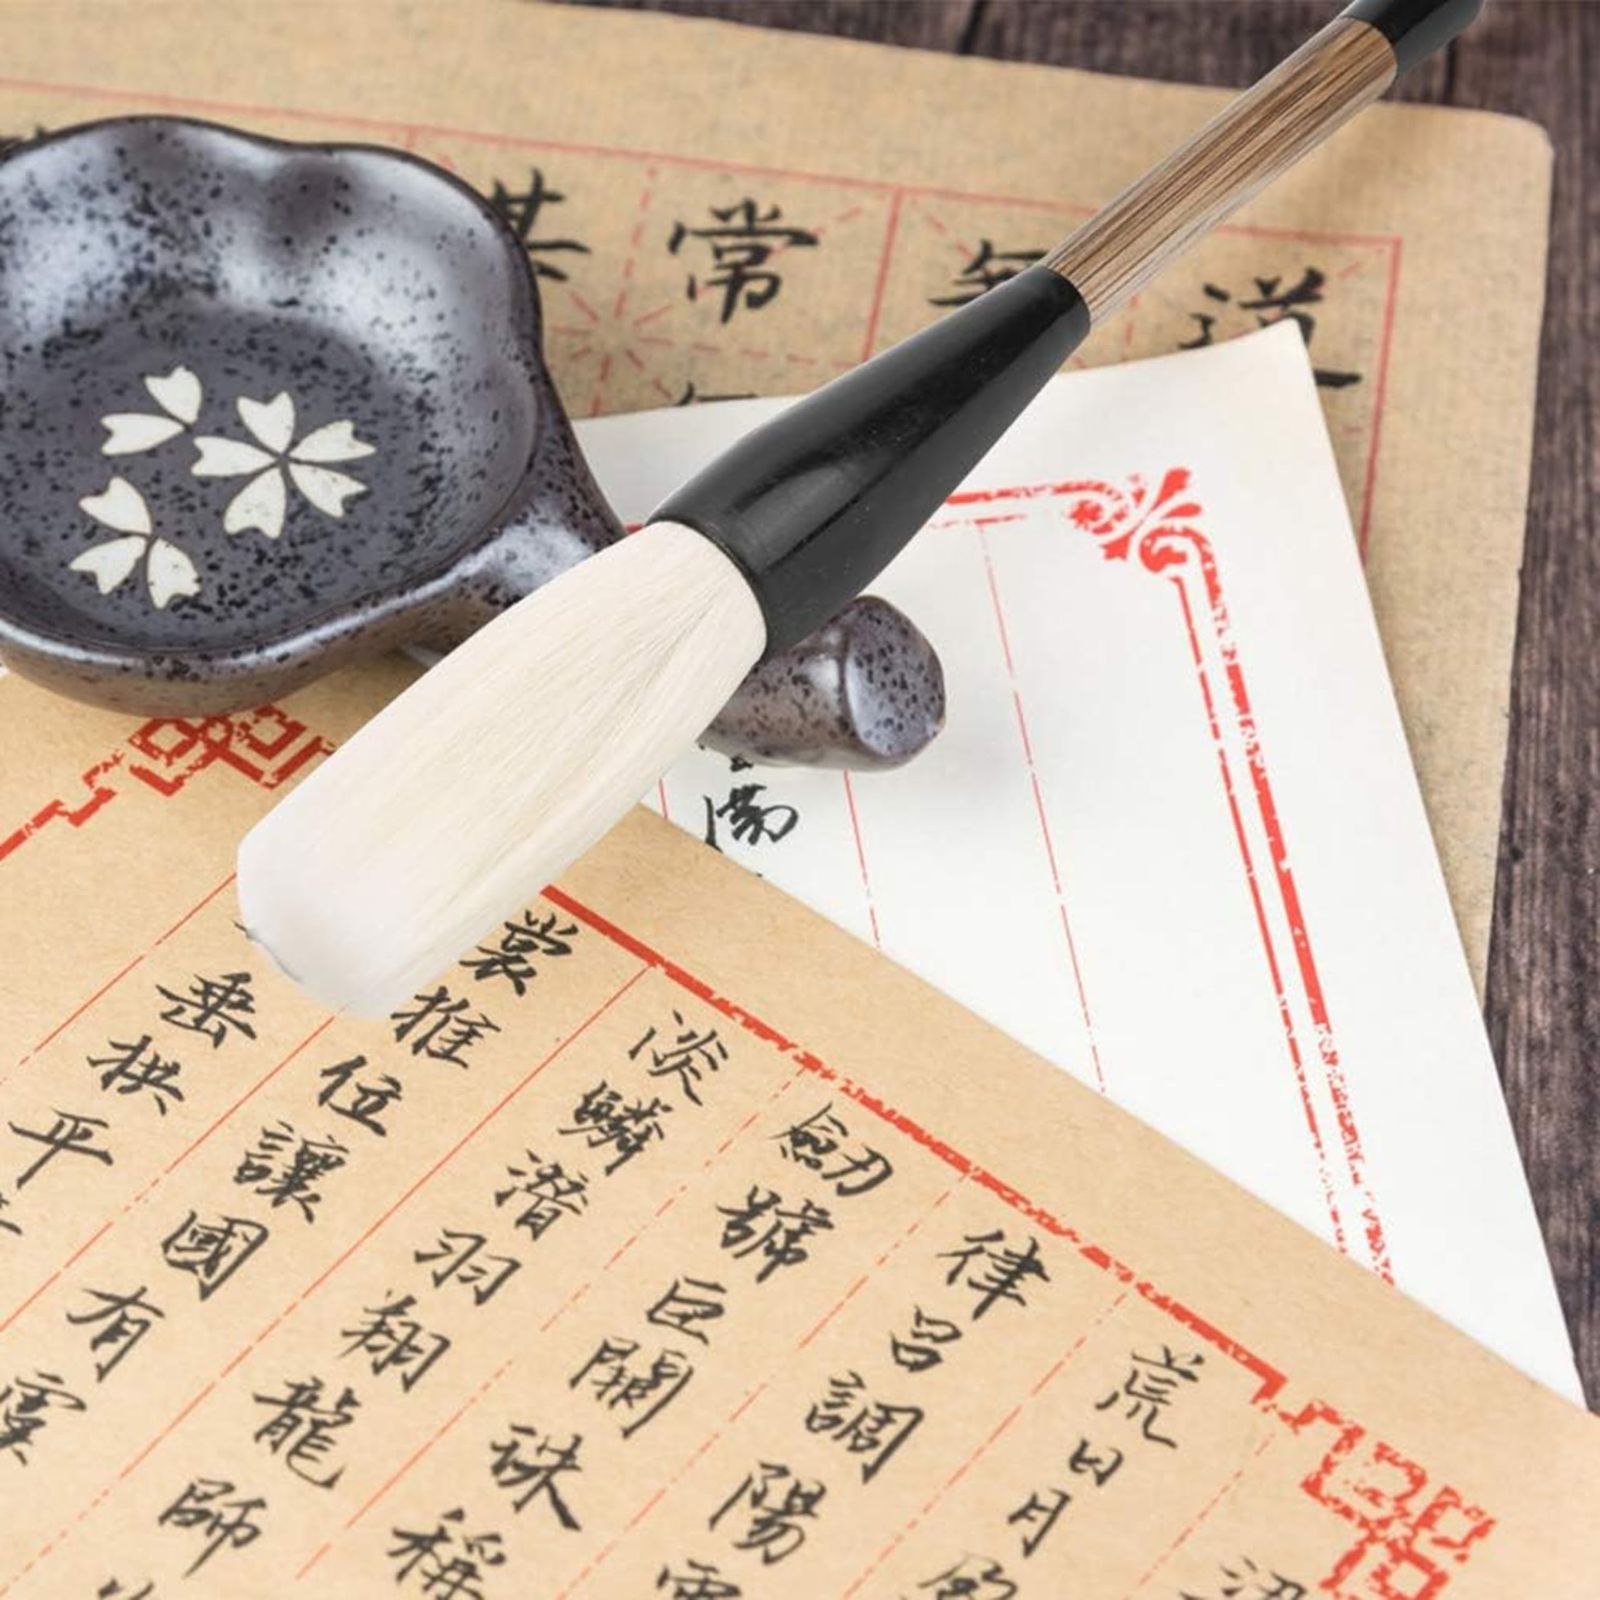 道
常
其
荒日月
律呂調陽
劍號巨闕珠稱
淡鱗潛羽翔龍師
裳推位讓國有虞
垂拱平